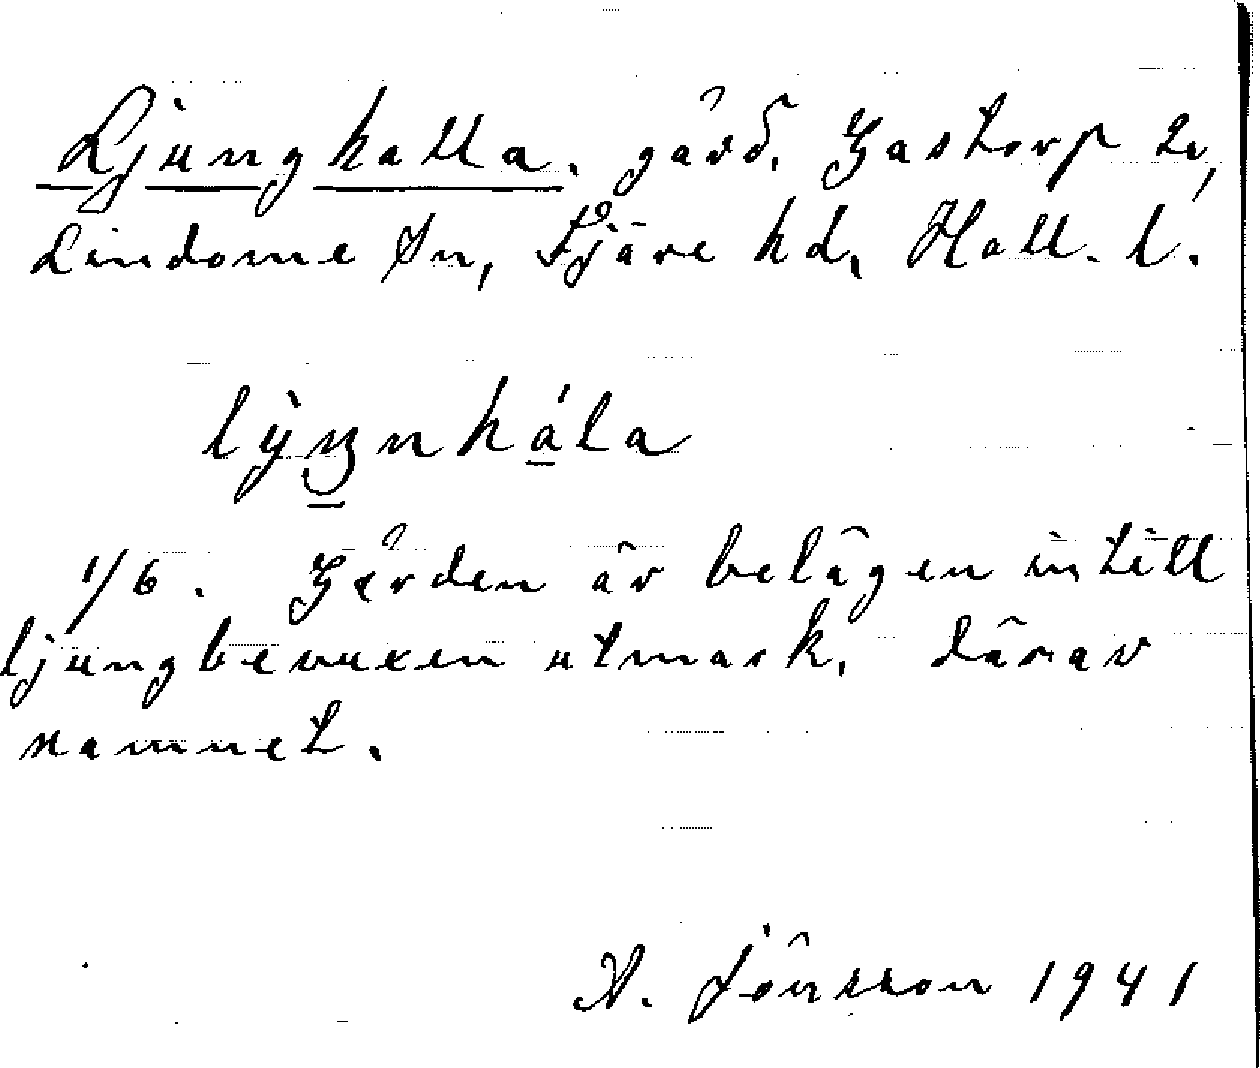 Ljungkalla. gård. Gastorp 2,
Lindome sn, Fjäre hd, Hall. l.
1/6. Gården är belägen intill
ljungbevuxen utmark, därav
namnet.
A. Jönsson 1941